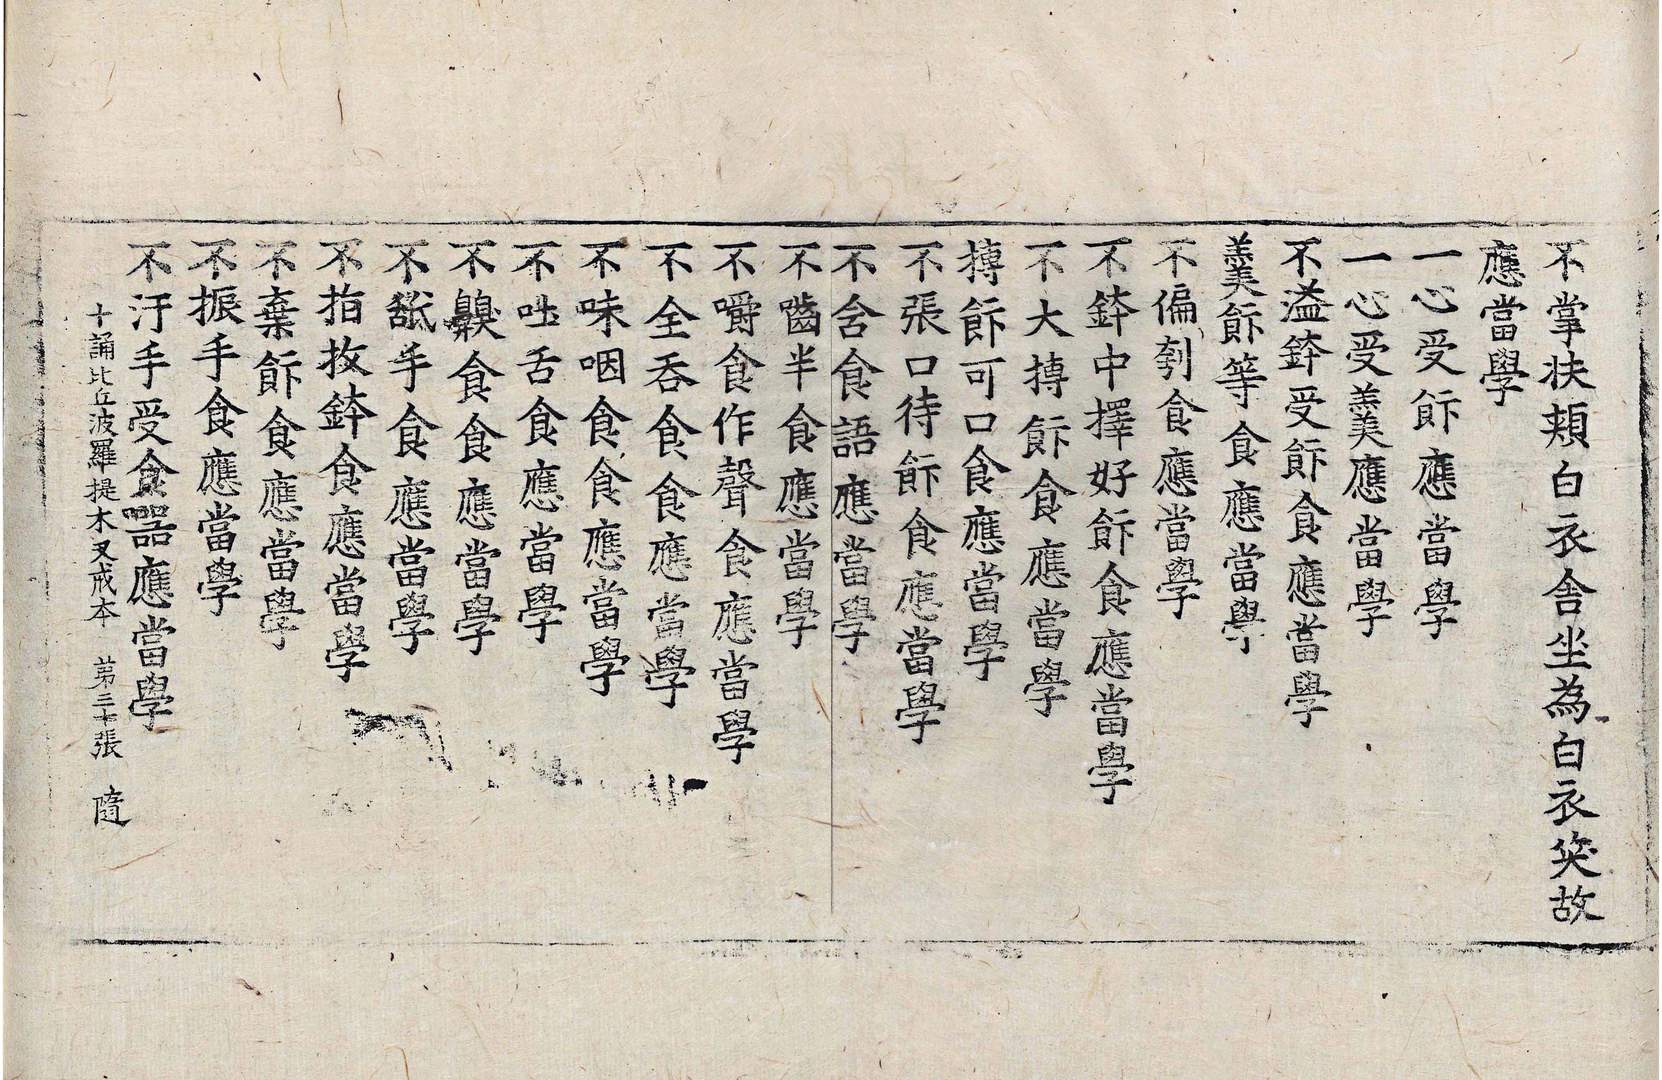 不掌扶頰白衣舍坐為白衣笑故
應當學
一心受飰應當學
一心受羹應當學
不溢鉢受飰食應當學
羹飰等食應當學
不偏刳食應當學
不鉢中擇好飰食應當學
不大摶飰食應當學
摶飰可口食應當學
不張口待飰食應當學
不含食語應當學
不嚙半食應當學
不嚼食作聲食應當學
不全吞食食應當學
不味咽食食應當學
不吐舌食應當學
不齅食食應當學
不舐手食應當學
不指抆鉢食應當學
不棄飰食應當學
不振手食應當學
不汙手受食器應當學
十誦比丘波羅提木叉戒本 第三十張 隨